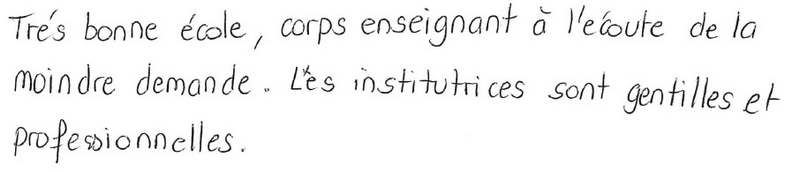 Trés bonne école, corps enseignant à l'écoute de la
moindre demande. Les institutrices sont gentilles et
professionnelles.